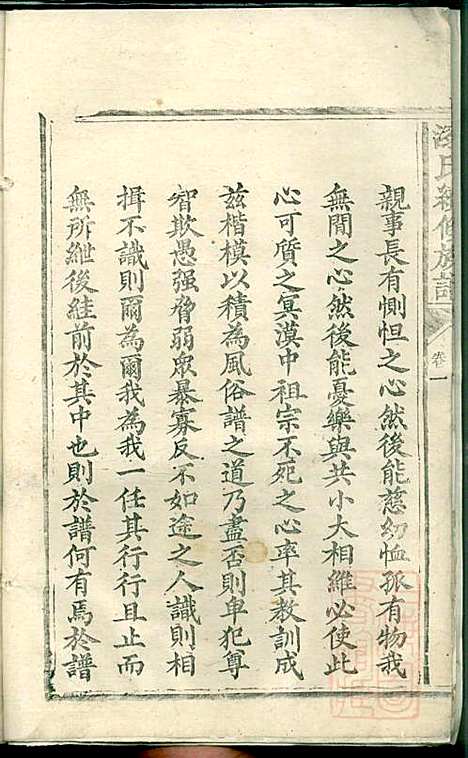 氏續修族譜
卷一
親事長有惻怛之心然後能慈幼恤孤有物我
無間之心然後能憂樂與共小大相維必使此
心可質之冥漠中祖宗不死之心率其教訓成
茲楷模以積為風俗譜之道乃盡否則卑犯尊
智欺愚强脅弱眾暴寡反不如途之人識則相
揖不識則爾為爾我為我一任其行行且止而
無所紲後絓前於其中也則於譜何有焉於譜